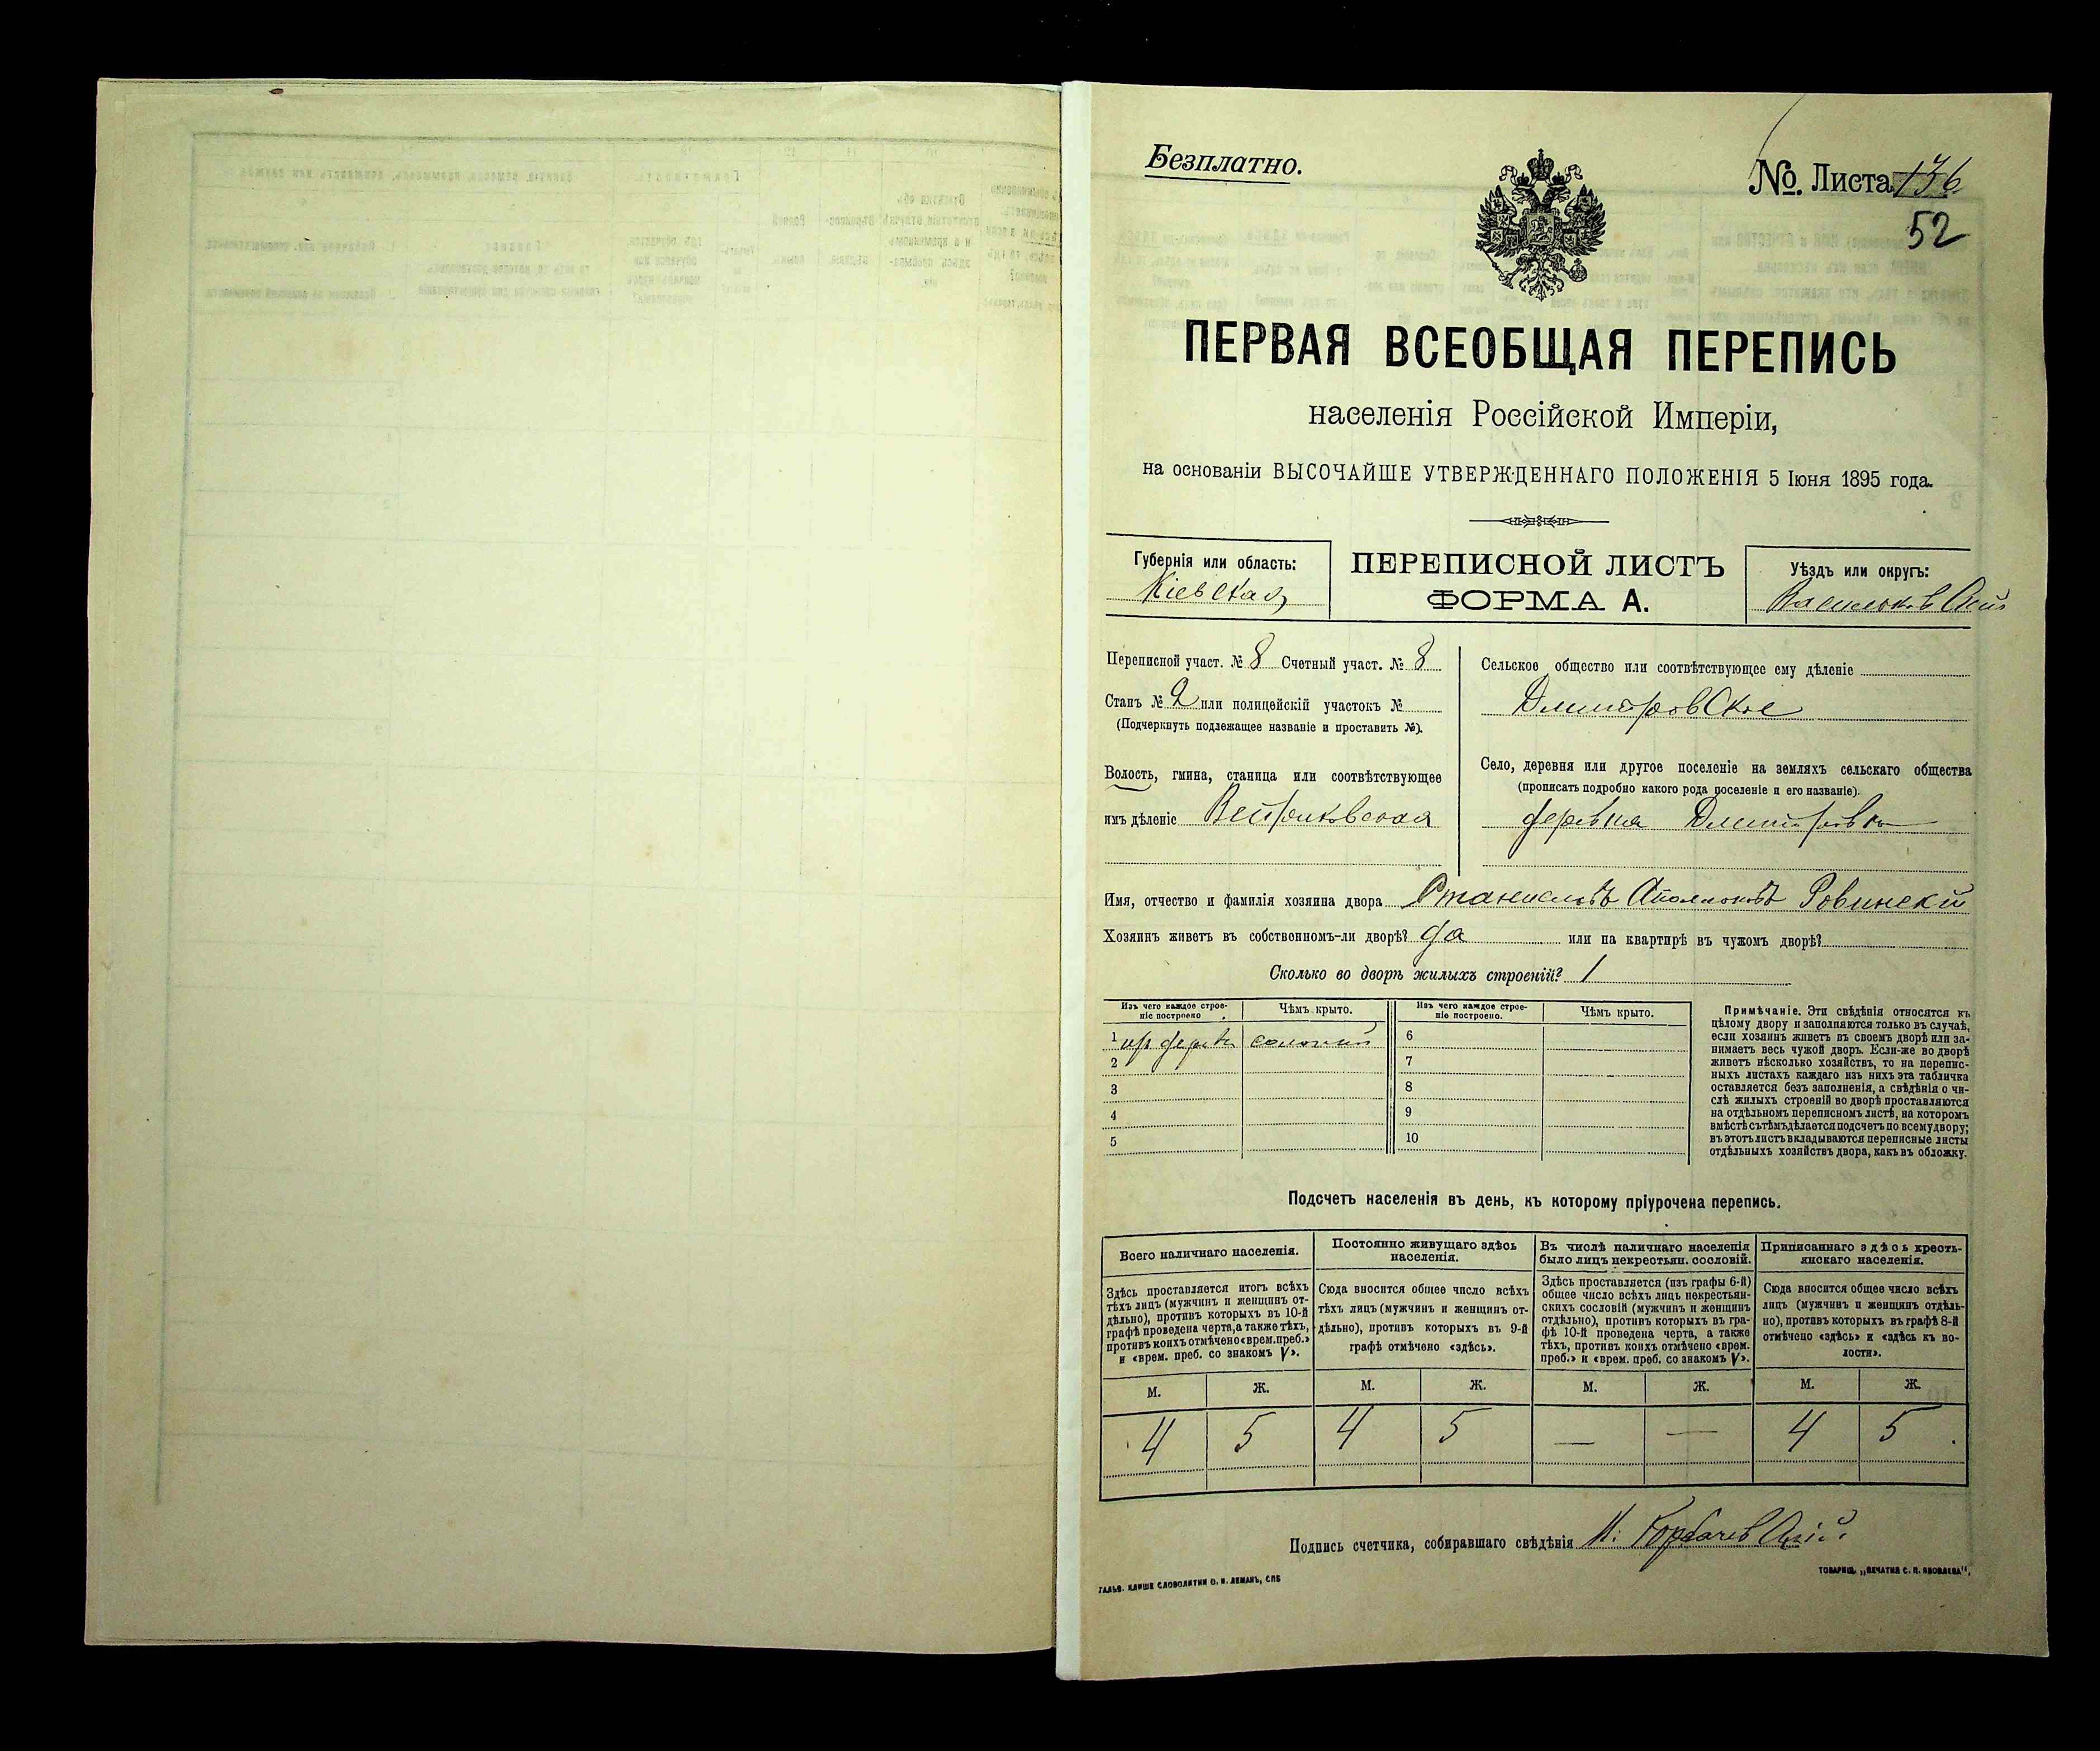 Безплатно.
№. Листа 136
52
ПЕРВАЯ ВСЕОБЩАЯ ПЕРЕПИСЬ
населенія Россійской Имперіи,
на основаніи ВЫСОЧАЙШЕ УТВЕРЖДЕННАГО ПОЛОЖЕНІЯ 5 Іюня 1895 года.
Губернія или область:
Кіевская
ПЕРЕПИСНОЙ ЛИСТЪ
ФОРМА А.
Уѣздъ или округъ:
Васильковскій
Переписной участ. № 8 Счетный участ. № 8
Станъ № 2 или полицейскій участокъ №
(Подчеркнуть подлежащее названіе и проставить №).
Волость, гмина, станица или соотвѣтствующее
имъ дѣленіе
Сельское общество или соотвѣтствующее ему дѣленіе
Дмитровское
Село, деревня или другое поселеніе на земляхъ сельскаго общества
(прописать подробно какого рода поселеніе и его названіе).
деревня Дмитровка
Имя, отчество и фамилія хозяина двора Станиславъ Ровинскій
Хозяинъ живетъ въ собственномъ-ли дворѣ? да или на квартирѣ въ чужомъ дворѣ?
Сколько во дворѣ жилыхъ строеній? 1
Изъ чего каждое строе-
ніе построено.
Чѣмъ крыто.
Изъ чего каждое строе-
ніе построено.
Чѣмъ крыто.
1 6
2 7
3 8
4 9
5 10
Примѣчаніе. Эти свѣдѣнія относятся къ
цѣлому двору и заполняются только въ случаѣ,
если хозяинъ живетъ въ своемъ дворѣ или за-
нимаетъ весь чужой дворъ. Если-же во дворѣ
живетъ нѣсколько хозяйствъ, то на перепис-
ныхъ листахъ каждаго изъ нихъ эта табличка
оставляется безъ заполненія, а свѣдѣнія о чи-
слѣ жилыхъ строеній во дворѣ проставляются
на отдѣльномъ переписномъ листѣ, на которомъ
вмѣстѣ съ тѣмъ дѣлается подсчетъ по всему двору;
въ этотъ листъ вкладываются переписные листы
отдѣльныхъ хозяйствъ двора, какъ въ обложку.
Подсчетъ населенія въ день, къ которому пріурочена перепись.
Всего наличнаго населенія.
Здѣсь проставляется итогъ всѣхъ
тѣхъ лицъ (мужчинъ и женщинъ от-
дѣльно), противъ которыхъ въ 10-й
графѣ проведена черта, а также тѣхъ,
противъ коихъ отмѣчено «врем. преб.»
и «врем. преб. со знакомъ V».
Постоянно живущаго здѣсь
населенія.
Сюда вносится общее число всѣхъ
тѣхъ лицъ (мужчинъ и женщинъ от-
дѣльно), противъ которыхъ въ 9-й
графѣ отмѣчено «здѣсь».
Въ числѣ наличнаго населенія
было лицъ некрестьян. сословій.
Здѣсь проставляется (изъ графы 6-й)
общее число всѣхъ лицъ некрестьян-
скихъ сословій (мужчинъ и женщинъ
отдѣльно), противъ которыхъ въ гра-
фѣ 10-й проведена черта, а также
тѣхъ, противъ коихъ отмѣчено «врем.
преб.» и «врем. преб. со знакомъ V».
Приписаннаго здѣсь кресть-
янскаго населенія.
Сюда вносится общее число всѣхъ
лицъ (мужчинъ и женщинъ отдѣль-
но), противъ которыхъ въ графѣ 8-й
отмѣчено «здѣсь» и «здѣсь къ во-
лости».
М. Ж. М. Ж. М. Ж. М. Ж.
4 5 4 5 — — 4 5
Подпись счетчика, собиравшаго свѣдѣнія
ГАЛЬВ. КЛИШЕ СЛОВОЛИТНИ О. И. ЛЕМАНЪ, СПБ
ТОВАРИЩ. „ПЕЧАТНЯ С. П. ЯКОВЛЕВА",